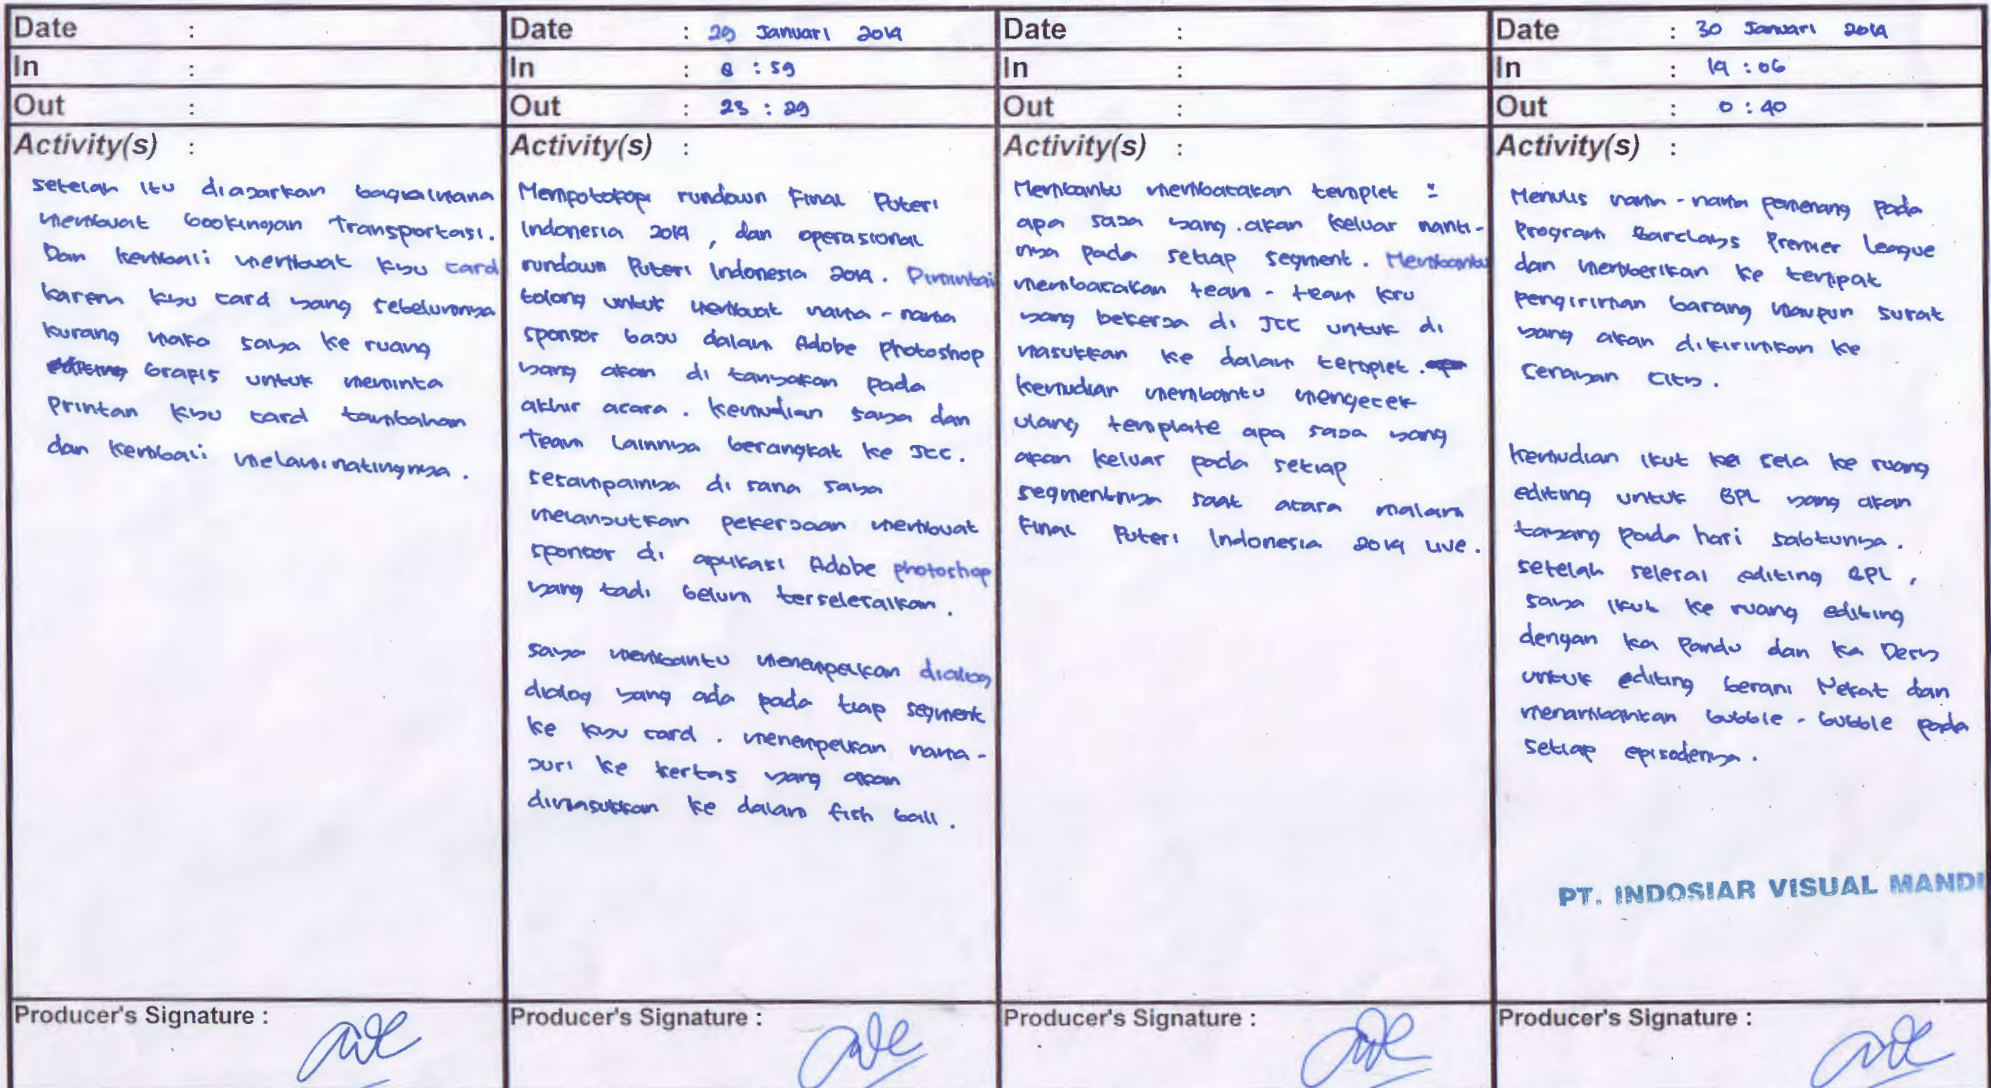 Date :
In :
Out :
Activity(s) :
setelah itu diajarkan bagaimana
membuat bookingan Transportasi.
Dan kembali membuat kyu card
karena kyu card yang sebelumnya
kurang maka saya ke ruang
Grapis untuk meminta
Printan kyu card tambahan
dan kembali melaminatingnya.
Producer's Signature :
Date : 29 Januari 2014
In : 8 : 59
Out : 23 : 29
Activity(s) :
Mempotokopi rundown Final Puteri
Indonesia 2014, dan operasional
rundown Puteri Indonesia 2014. Dimintai
tolong untuk membuat nama - nama
sponsor baju dalam Adobe photoshop
yang akan di tanyakan pada
akhir acara. kemudian saya dan
Team Lainnya berangkat ke JCC.
sesampainya di sana saya
melanjutkan pekerjaan membuat
sponsor di aplikasi Adobe photoshop
yang tadi belum terselesaikan.
saya membantu menempelkan dialog
dialog yang ada pada tiap segment
ke kyu card. menempelkan nama -
juri ke kertas yang akan
dimasukkan ke dalam fish ball.
Producer's Signature :
Date :
In :
Out :
Activity(s) :
Membantu membacakan templet :
apa saja yang akan keluar nanti-
nya pada setiap segment. Membantu
membacakan team - team kru
yang bekerja di JCC untuk di
masukkan ke dalam templet.
kemudian membantu mengecek
ulang template apa saja yang
akan keluar pada setiap
segmentnya saat acara malam
Final Puteri Indonesia 2014 Live.
Producer's Signature :
Date : 30 Januari 2014
In : 14 : 06
Out : 0 : 40
Activity(s) :
Menulis nama - nama pemenang pada
Program Barclays Premier League
dan memberikan ke tempat
pengiriman barang maupun surat
yang akan dikirimkan ke
Senayan City.
kemudian ikut ka sela ke ruang
editing untuk BPL yang akan
tayang pada hari sabtunya.
setelah selesai editing BPL,
saya ikut ke ruang editing
dengan ka Pandu dan ka Dery
untuk editing berani Nekat dan
menambahkan bubble - bubble pada
setiap episodenya.
PT. INDOSIAR VISUAL MANDI
Producer's Signature :